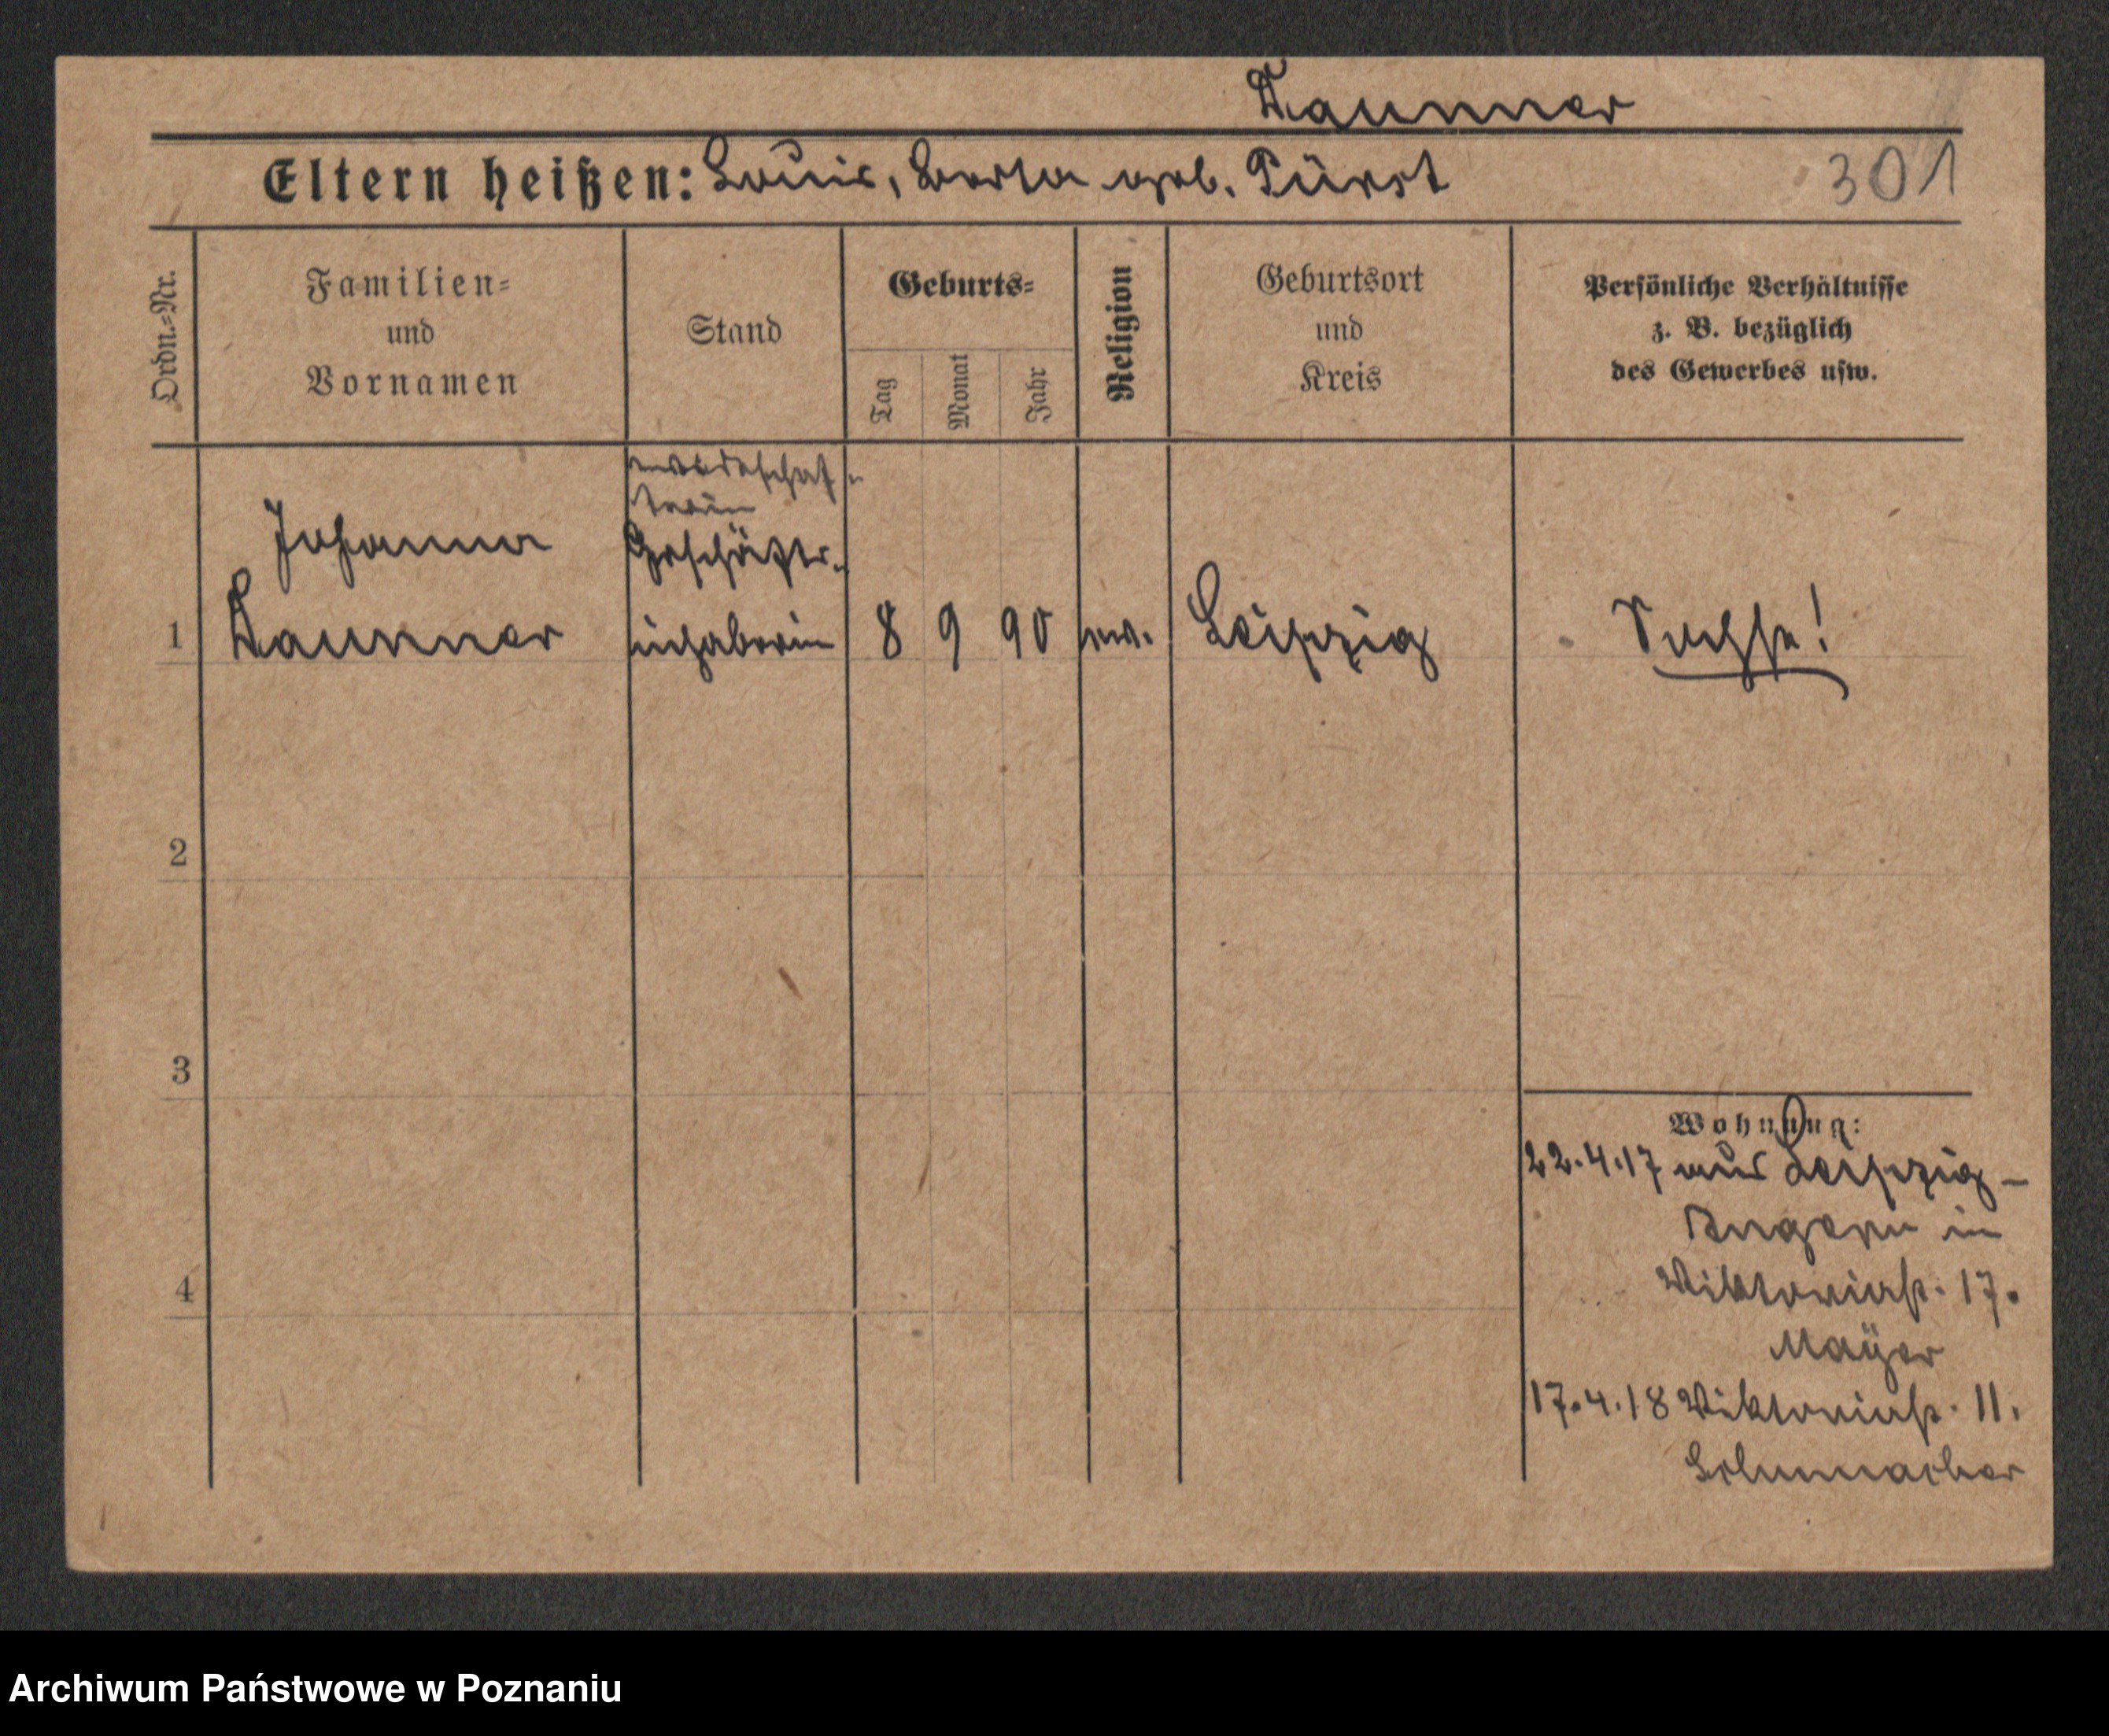 Daumner
Eltern heißen: Louis, Berta geb. Fürst
301
Ordn.-Nr.
Familien-
und
Vornamen
Stand
Geburts-
Tag
Monat
Jahr
Religion
Geburtsort
und
Kreis
Persönliche Verhältnisse
z. B. bezüglich
des Gewerbes usw.
Johanna
Geschäfts-
1 Daumner inhaberin 8 9 90 ev. Leipzig Sachse!
2
3
4
Wohnung:
22.4.17 aus Leipzig-
Angern in
Viktoriastr. 17.
Mayer
17.4.18 Viktoriastr. 11.
Schumacher
Archiwum Państwowe w Poznaniu